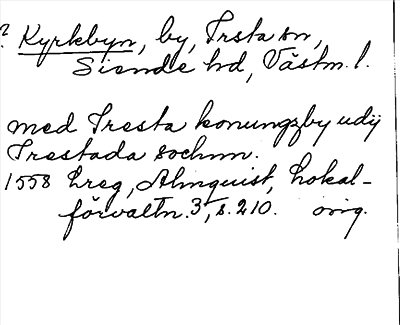 ? Kyrkbyn, by, Irsta sn,
Siende hd, Västm. l.
med Iresta konungzby udij
Irestada sochnn.
1558 Lreg, Almquist, Lokal-
förvaltn. 3, s. 210. orig.